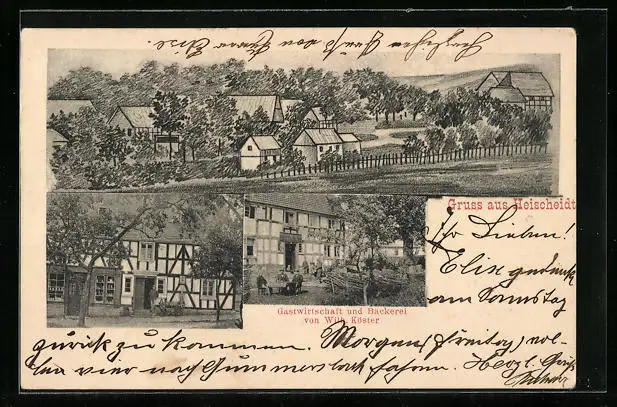 Herzlichen Gruß von Eurer Elise
Gruss aus Heischeidt
Ihr Lieben!
Elise gedenkt
am Sonnstag
Gastwirtschaft und Bäckerei
von Wilh. Köster
zurück zu kommen. Morgen (Freitag) wol-
len wir nach Gummersbach fahren. Herzl. Grüße